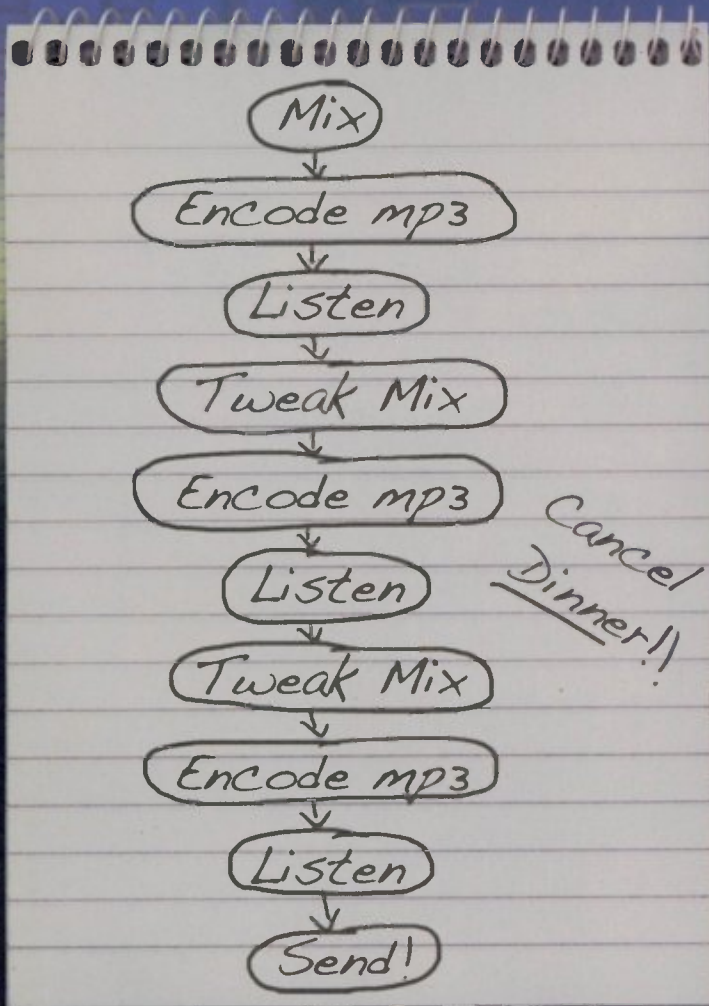 Mix
Encode mp3
Listen
Tweak Mix
Encode mp3
Listen
Tweak Mix
Encode mp3
Listen
Send!
Cancel
Dinner!!